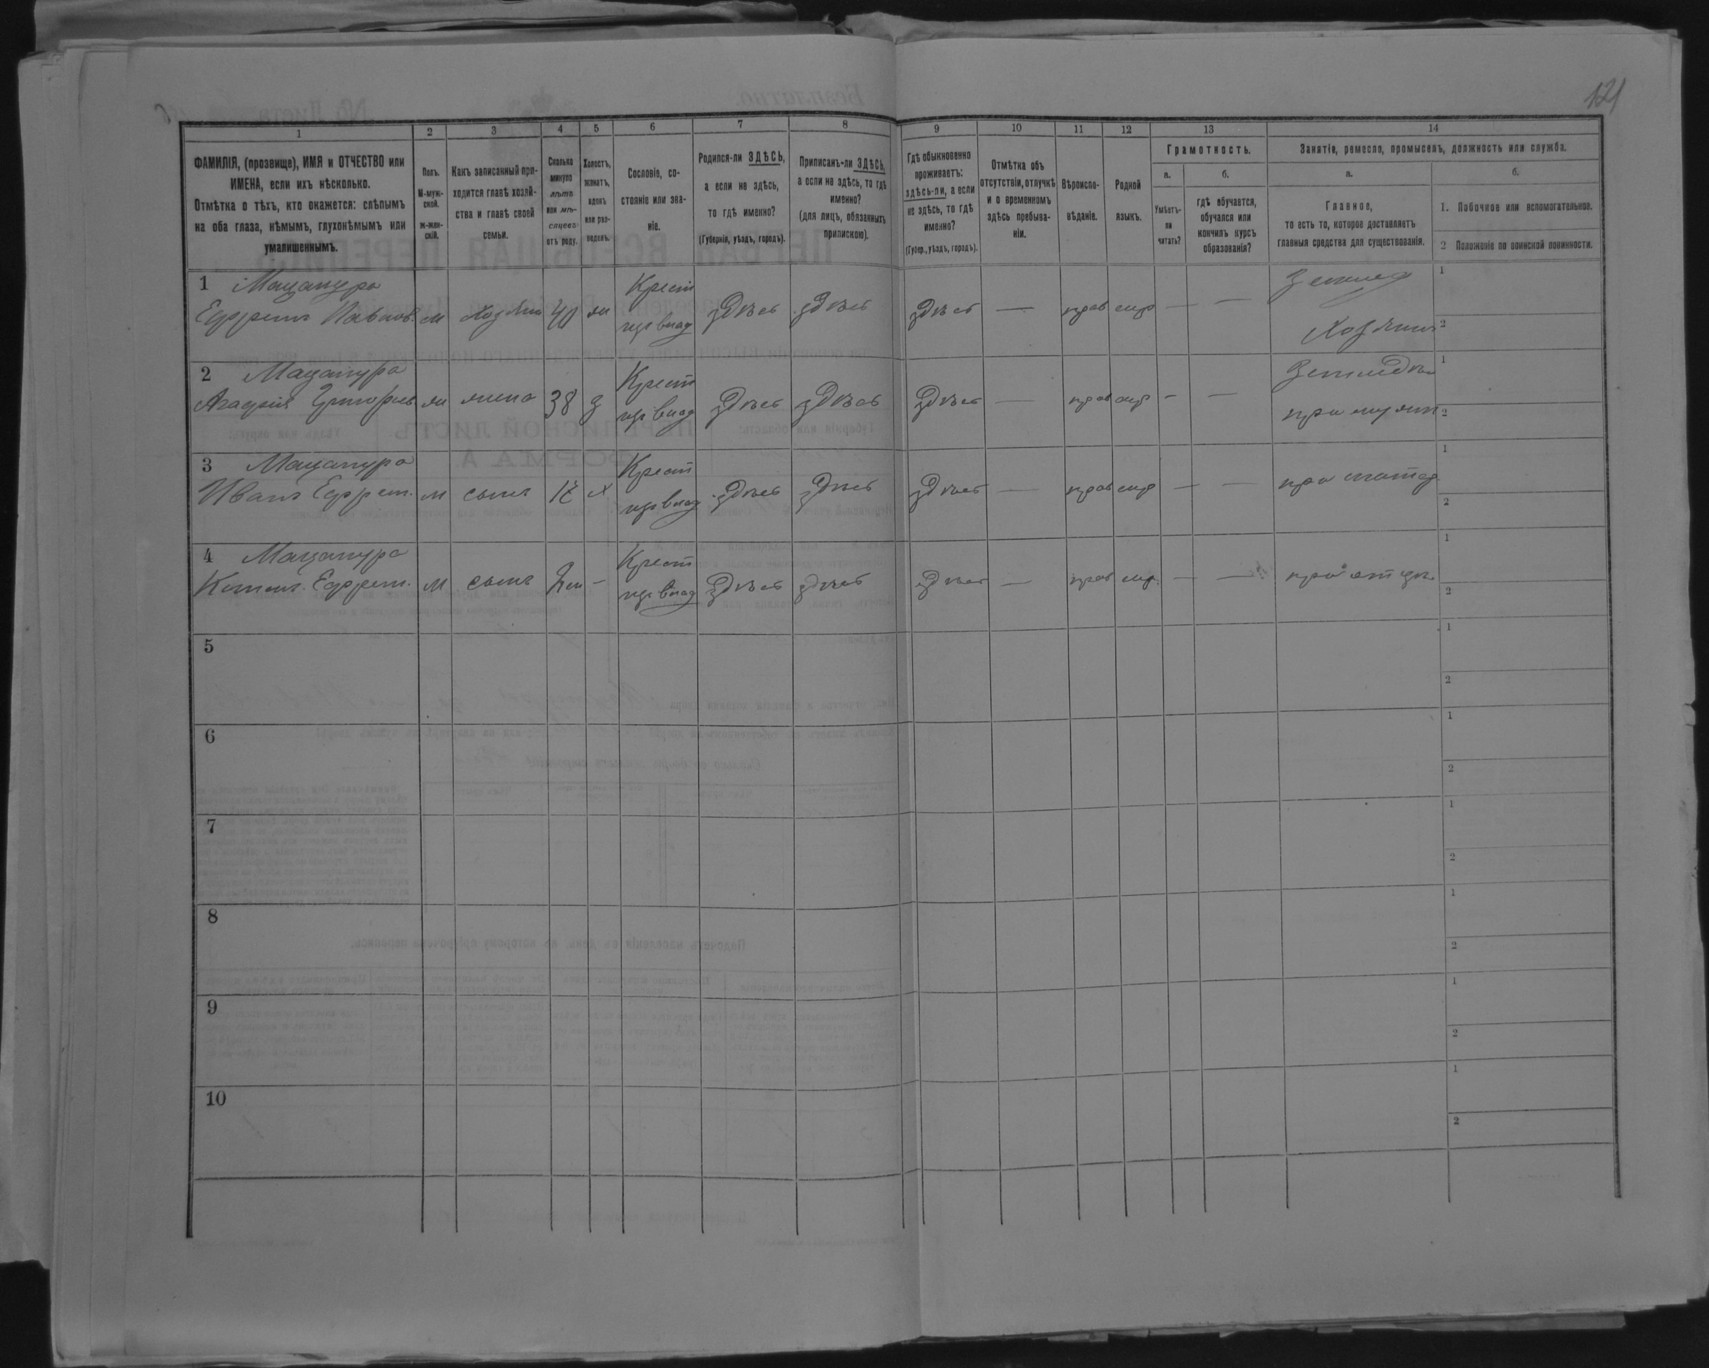 121
1 2 3 4 5 6 7 8 9 10 11 12 13 14
ФАМИЛІЯ, (прозвище), ИМЯ и ОТЧЕСТВО или
ИМЕНА, если ихъ нѣсколько.
Отмѣтка о тѣхъ, кто окажется: слѣпымъ
на оба глаза, нѣмымъ, глухонѣмымъ или
умалишеннымъ.
Полъ.
М-муж-
ской.
ж-жен-
скій.
Какъ записанный при-
ходится главѣ хозяй-
ства и главѣ своей
семьи.
Сколько
минуло
лѣтъ
или мѣ-
сяцевъ
отъ роду.
Холостъ,
женатъ,
вдовъ
или раз-
веденъ.
Сословіе, со-
стояніе или зва-
ніе.
Родился-ли ЗДѢСЬ,
а если не здѣсь,
то гдѣ именно?
(Губернія, уѣздъ, городъ).
Приписанъ-ли ЗДѢСЬ,
а если не здѣсь, то гдѣ
именно?
(для лицъ, обязанныхъ
припискою).
Гдѣ обыкновенно
проживаетъ:
здѣсь-ли, а если
не здѣсь, то гдѣ
именно?
(Губер., уѣздъ, городъ).
Отмѣтка объ
отсутствіи, отлучкѣ
и о временномъ
здѣсь пребыва-
ніи.
Вѣроиспо-
вѣданіе.
Родной
языкъ.
Грамотность.
а. б.
Умѣетъ-
ли
читать?
гдѣ обучается,
обучался или
кончилъ курсъ
образованія?
Занятіе, ремесло, промыселъ, должность или служба.
а. б.
Главное,
то есть то, которое доставляетъ
главныя средства для существованія.
1. Побочное или вспомогательное.
2 Положеніе по воинской повинности.
1 Мацапура Крест Землед 1
Ефремъ Павлов. м хозяин 40 ж здѣсь здѣсь здѣсь — прав — — Хозяинъ 2
2 Мацапура Крест Земледѣл 1
Агафія Григорьев. ж жена 38 з здѣсь здѣсь здѣсь — прав — — при мужѣ 2
3 Мацапура Крест 1
Иванъ Ефрем. м сынъ х здѣсь здѣсь здѣсь — прав — — при 2
4 Мацапура Крест 1
Ефрем. м сынъ — здѣсь здѣсь здѣсь — прав — — при отцѣ 2
5 1
2
6 1
2
7 1
2
8 1
2
9 1
2
10 1
2